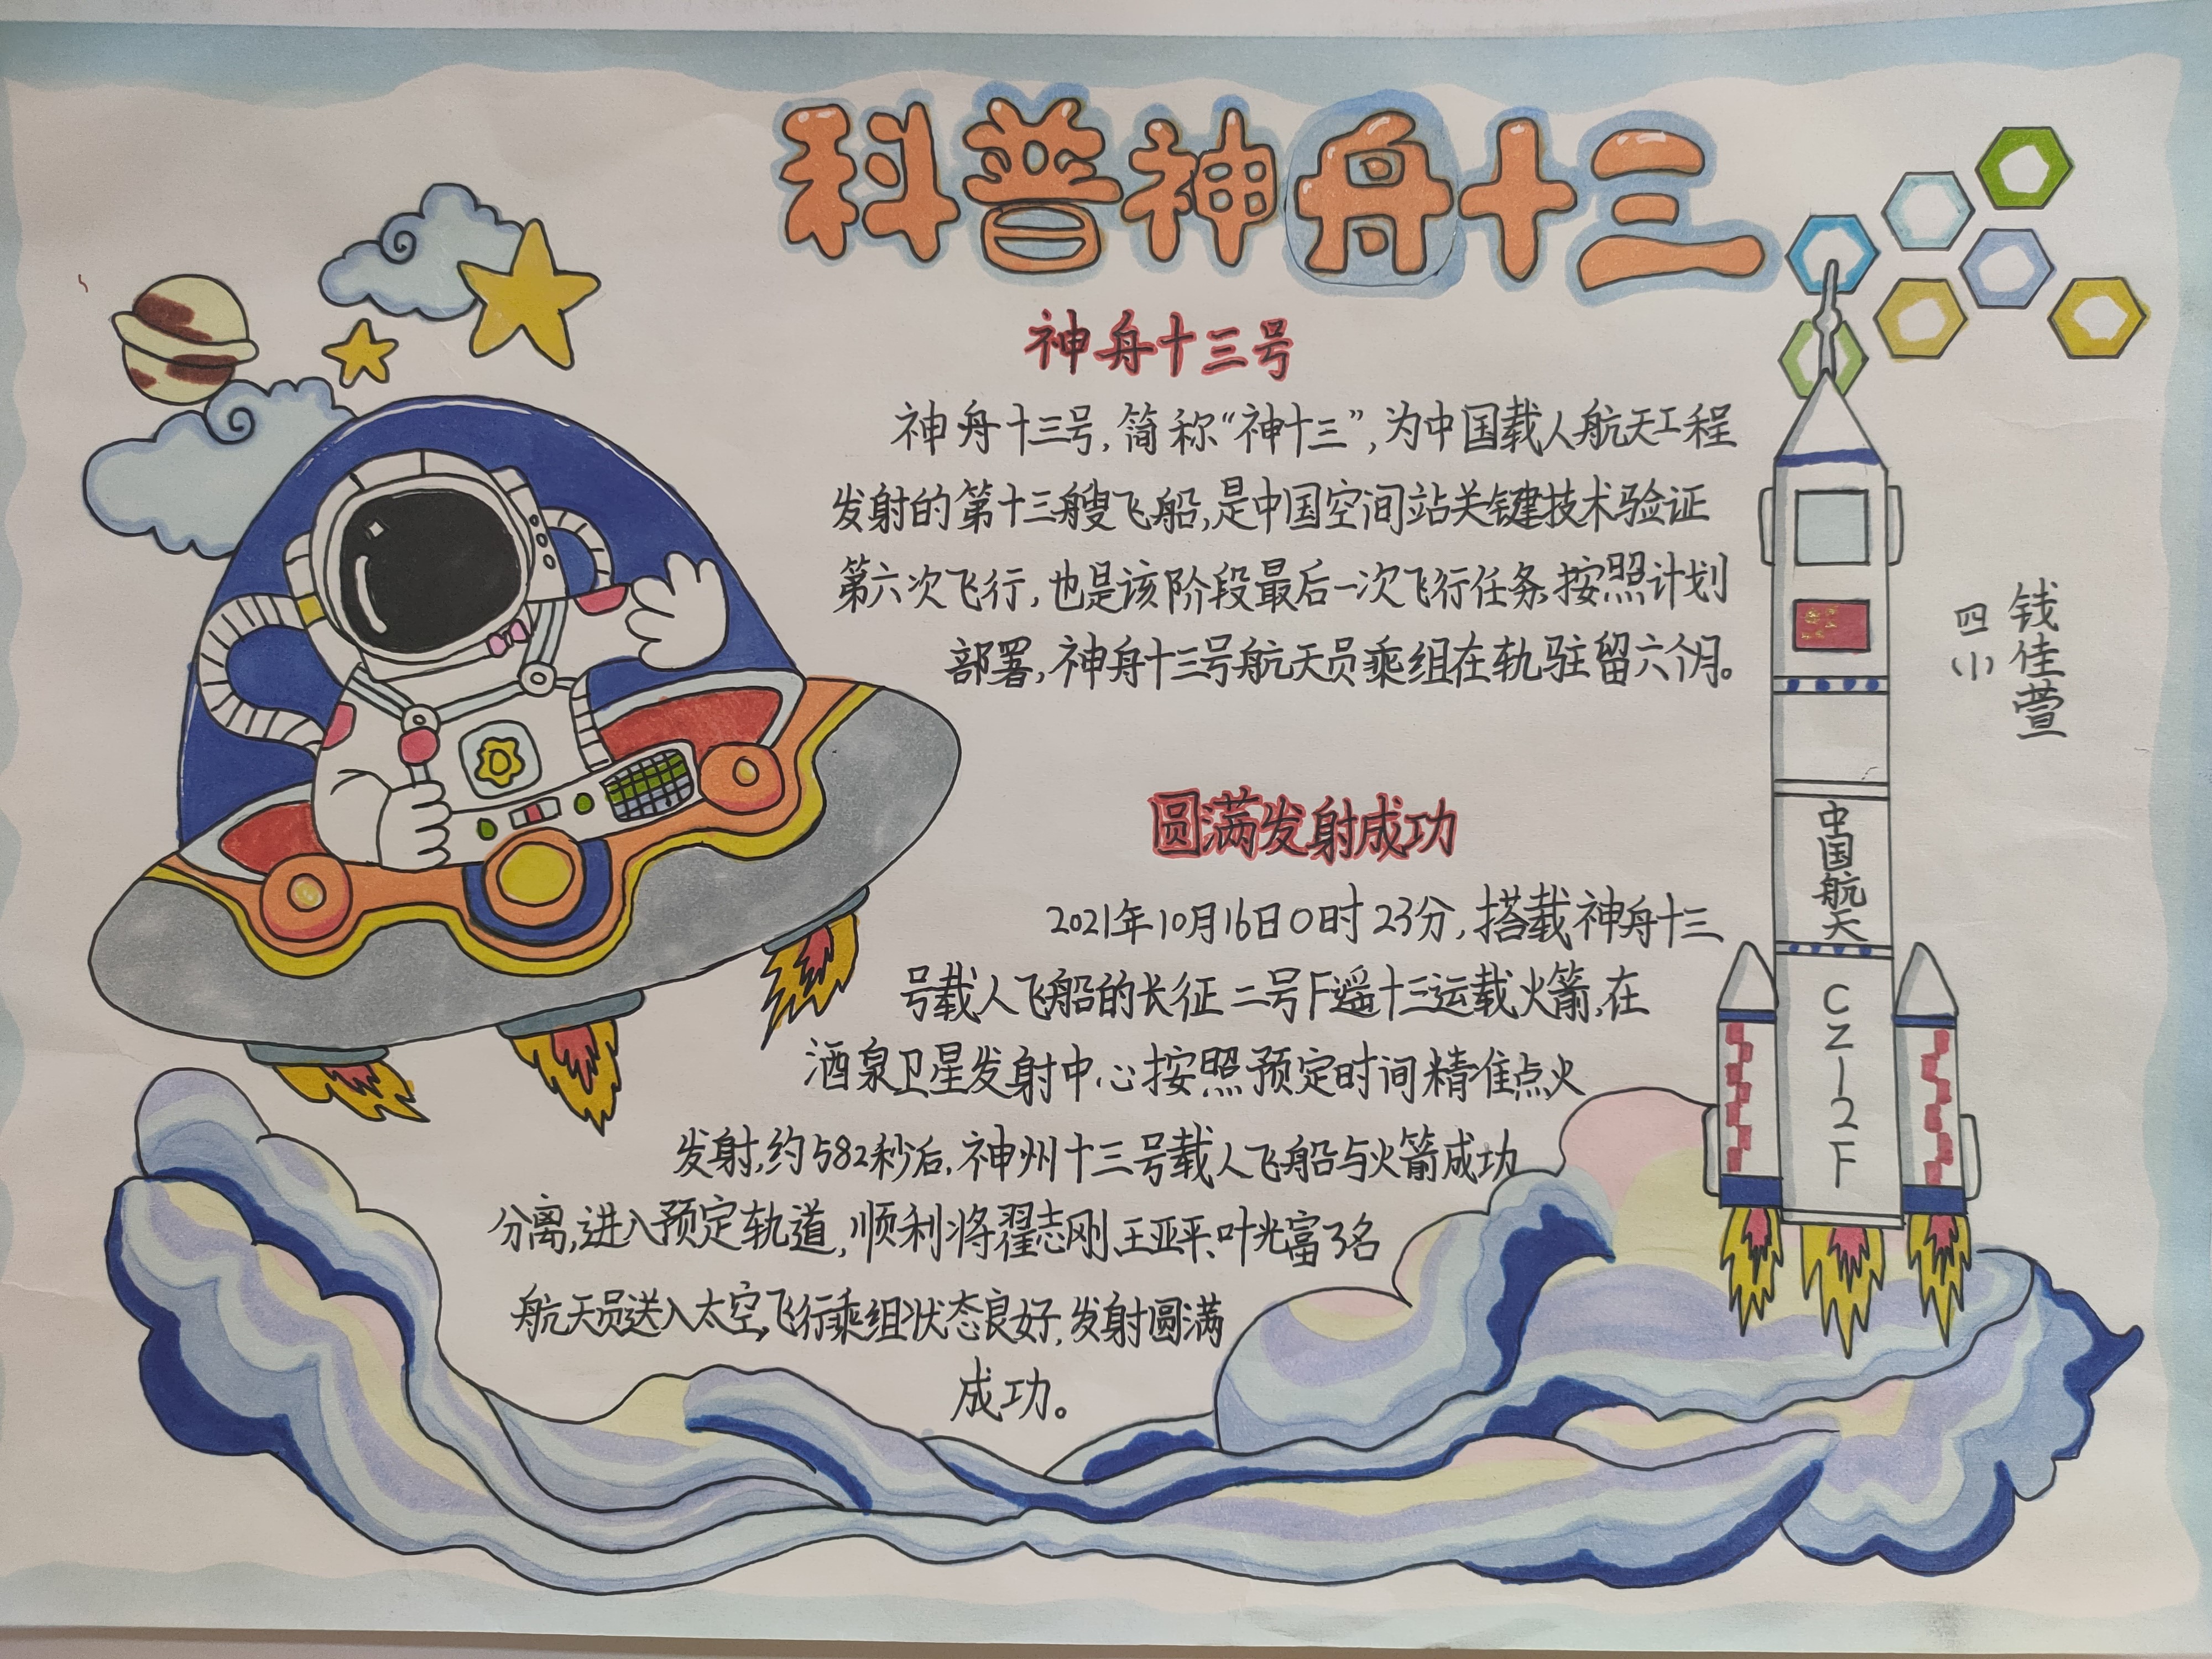 科普神舟十三
神舟十三号
神舟十三号,简称“神十三”,为中国载人航天工程
发射的第十三艘飞船,是中国空间站关键技术验证
第六次飞行,也是该阶段最后一次飞行任务,按照计划
部署,神舟十三号航天员乘组在轨驻留六个月。
圆满发射成功
2021年10月16日0时23分,搭载神舟十三
号载人飞船的长征二号F遥十三运载火箭,在
酒泉卫星发射中心按照预定时间精准点火
发射,约582秒后,神州十三号载人飞船与火箭成功
分离,进入预定轨道,顺利将翟志刚、王亚平、叶光富3名
航天员送入太空,飞行乘组状态良好,发射圆满
成功。
中国航天
CZ-2F
钱佳萱
四(1)